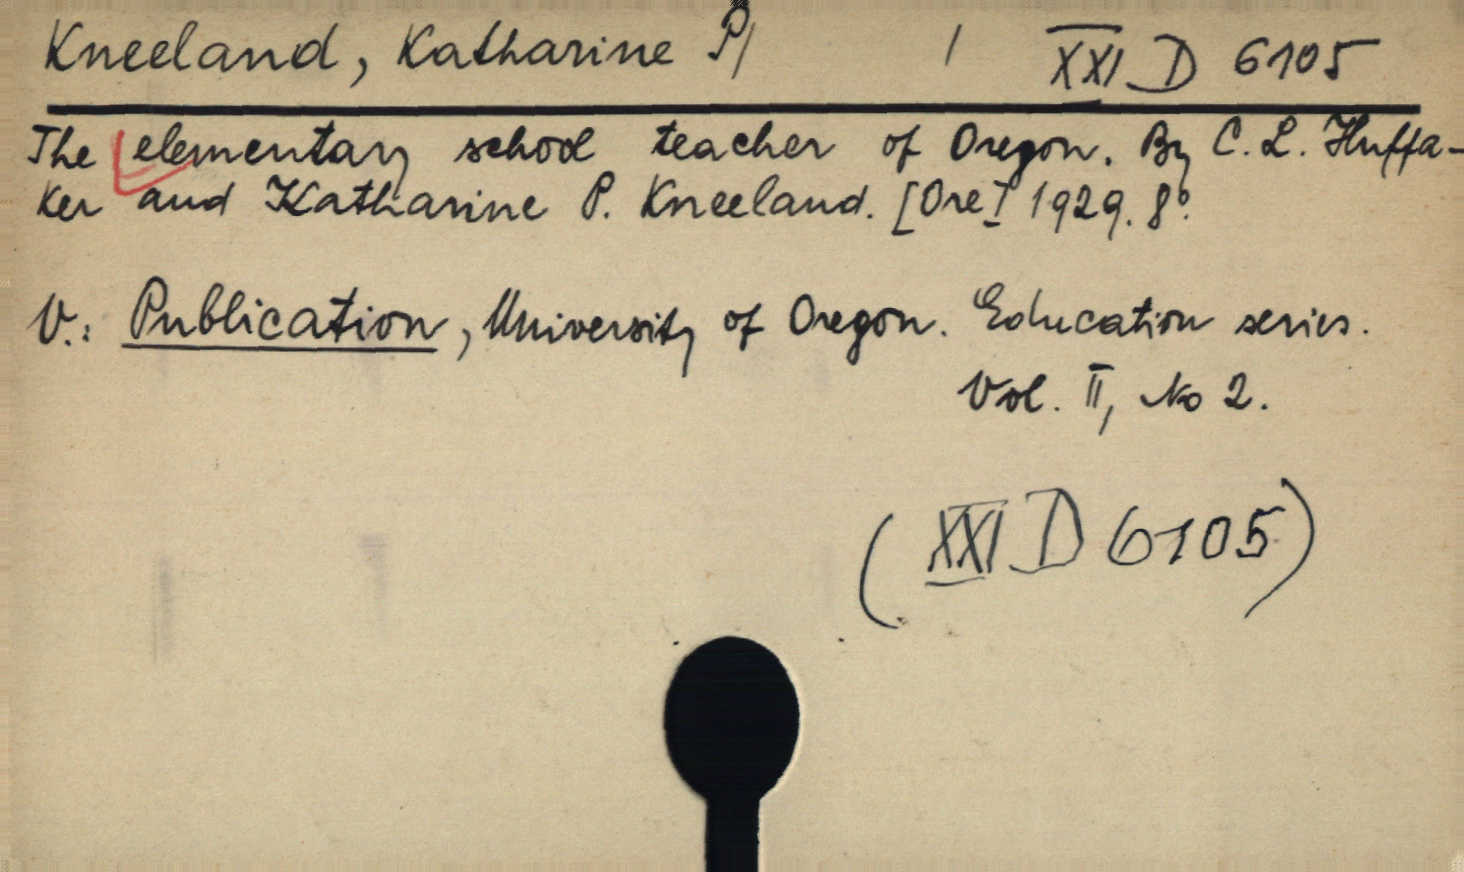 Kneeland, Katharine P/ / XXI D 6105
The elementary school teacher of Oregon. By C. L. Huffa-
ker and Katharine P. Kneeland. [Ore] 1929. 8°.
V.: Publication, University of Oregon. Education series.
Vol. II, No 2.
(XXI D 6105)